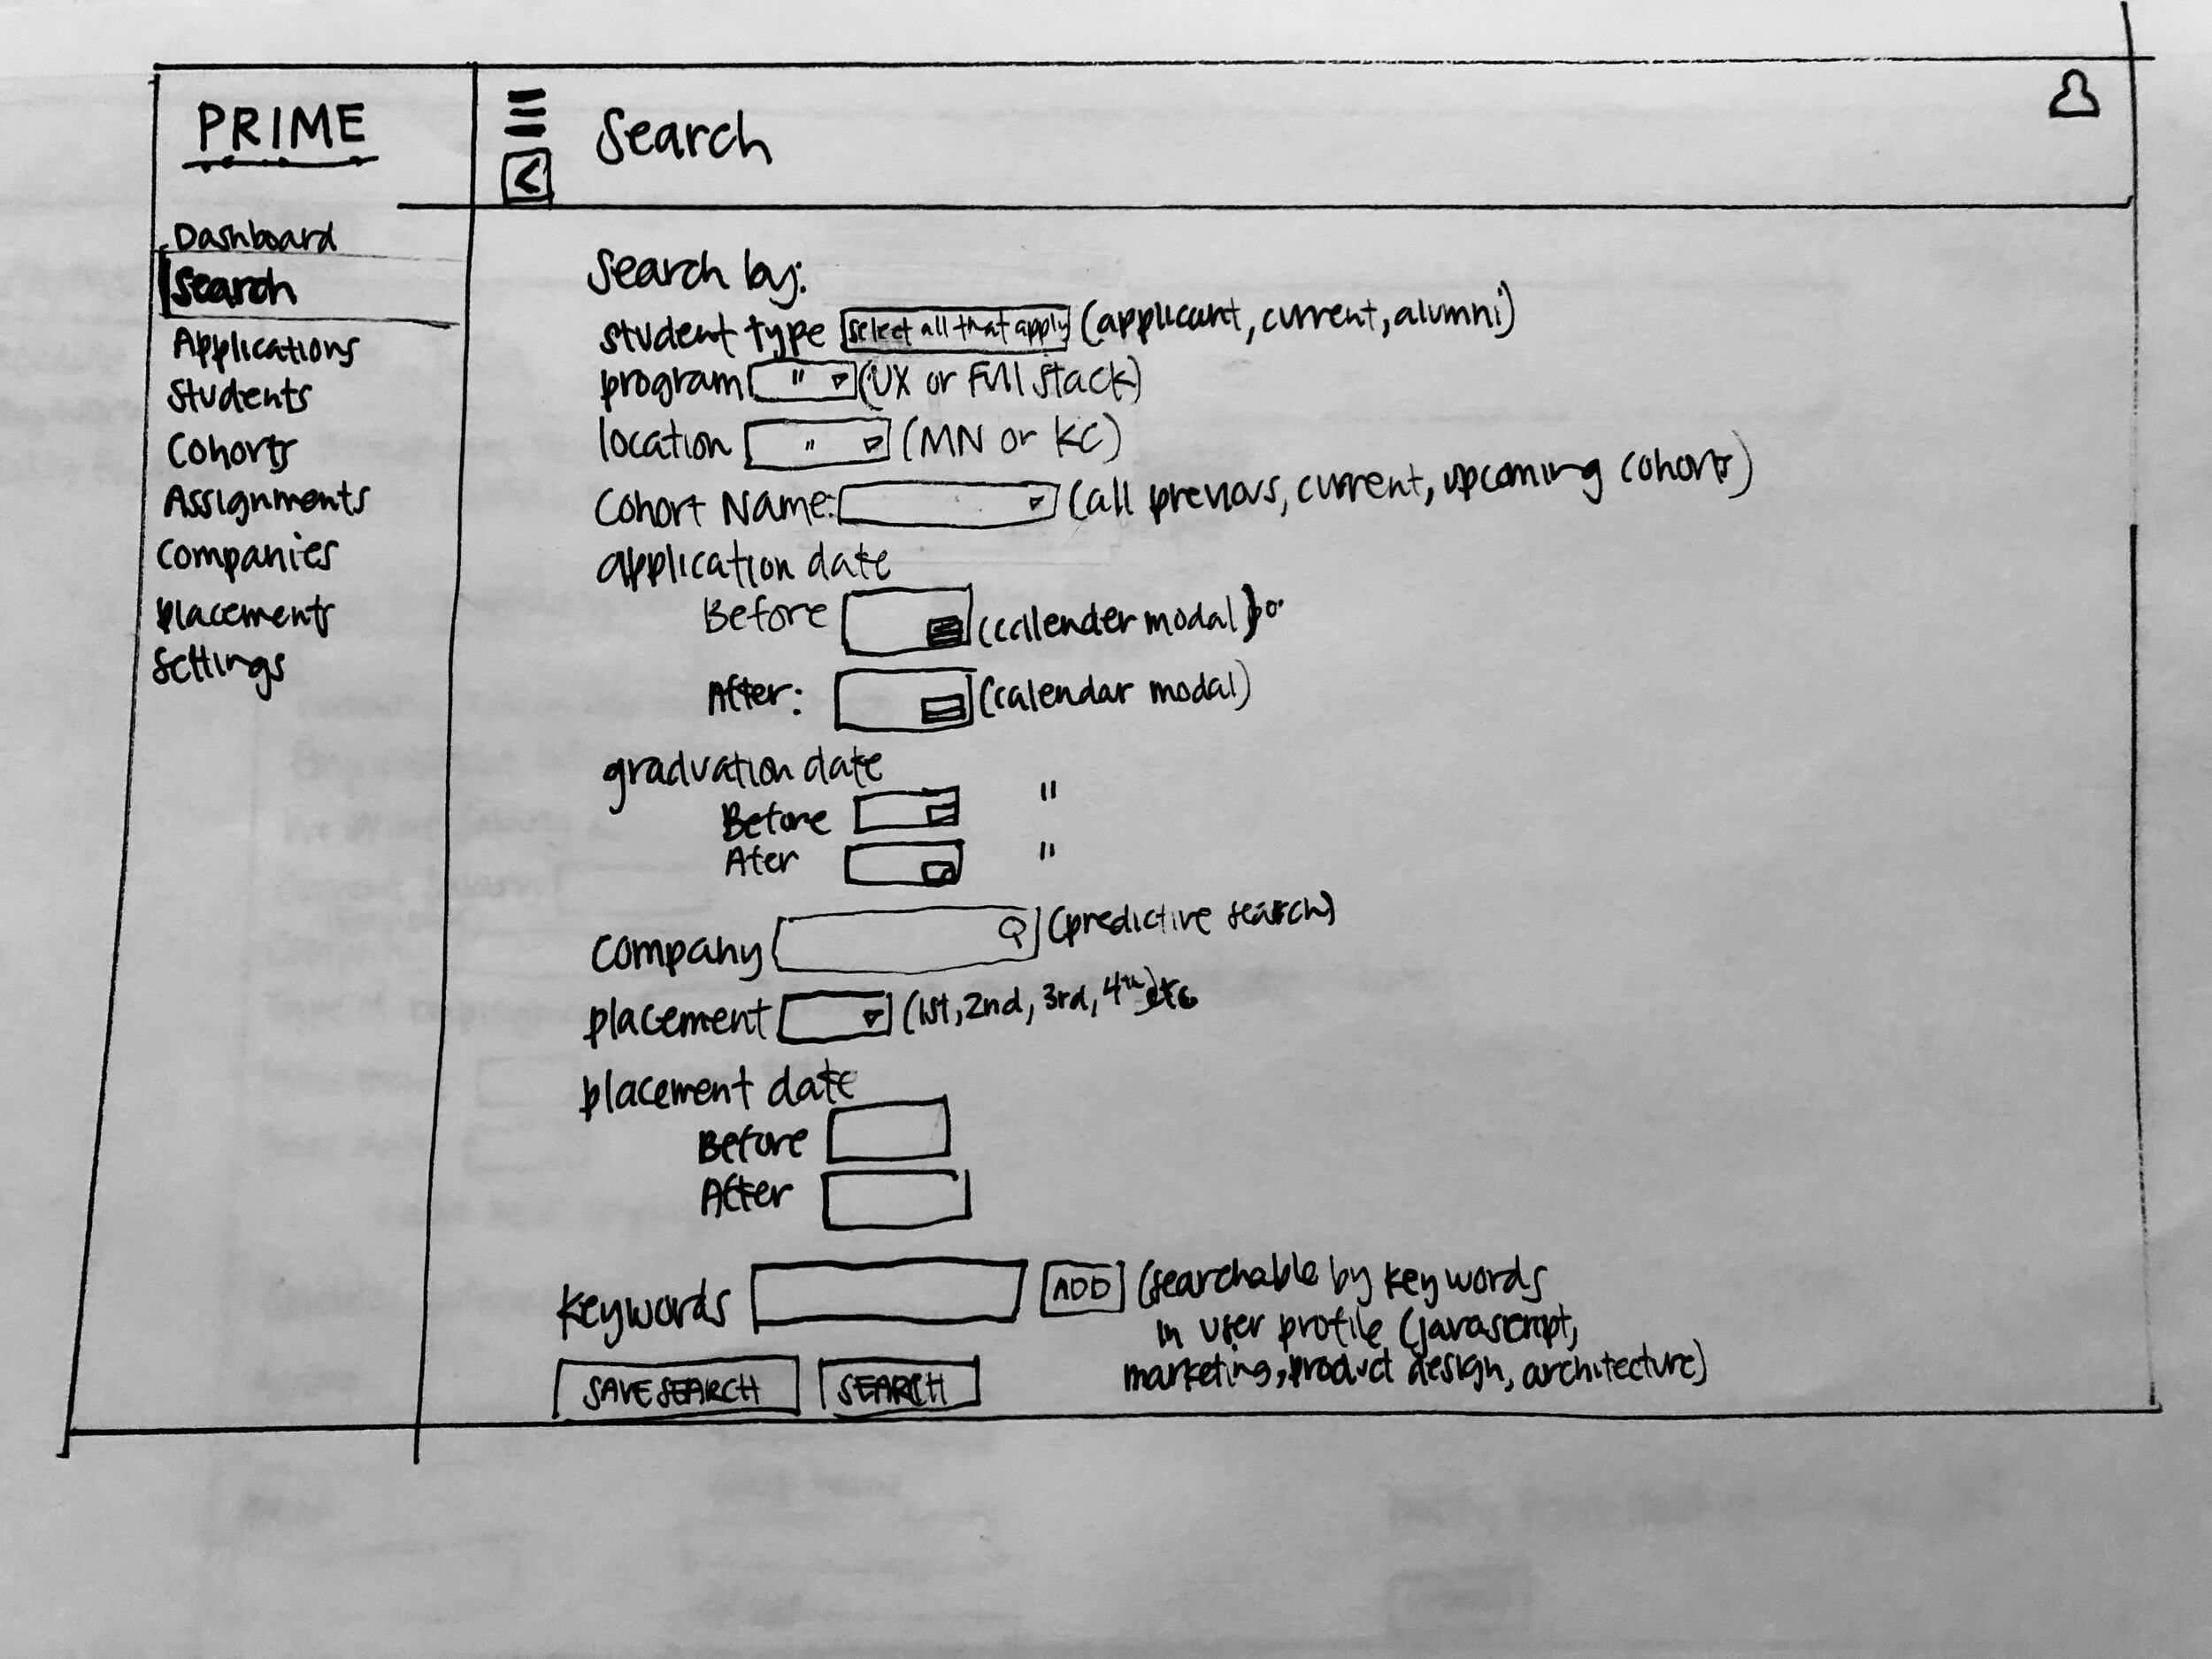 PRIME
Search
Dashboard
Search
Applications
Students
Cohorts
Assignments
Companies
placements
Settings
Search by:
student type select all that apply (applicant, current, alumni)
program " (UX or Full Stack)
location " (MN or KC)
Cohort Name: (all previous, current, upcoming cohorts)
application date
Before (calender modal)
After: (calendar modal)
graduation date
Before "
Ater "
Company (predictive search)
placement (1st, 2nd, 3rd, 4th) etc
placement date
Before
After
Keywords ADD (searchable by keywords
in user profile (javascript,
marketing, product design, architecture)
SAVE SEARCH SEARCH